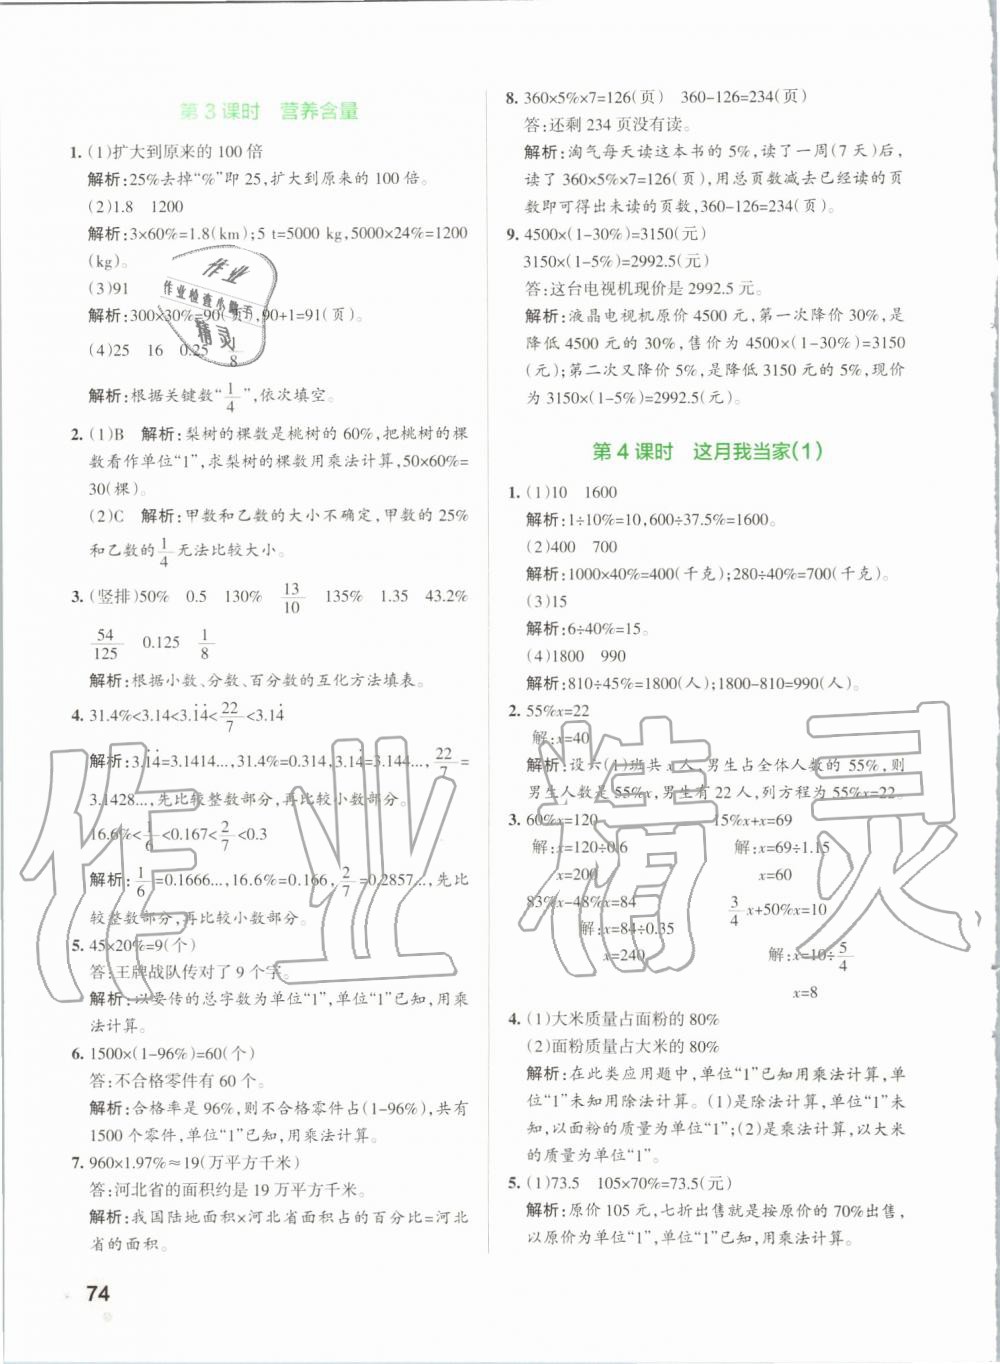 第3课时　营养含量
1. (1)扩大到原来的 100 倍
解析:25%去掉“%”即 25,扩大到原来的 100 倍。
(2)1.8　1200
解析:3×60%=1.8(km);5 t=5000 kg,5000×24%=1200
(kg)。
(3)91
解析:300×30%=90(页),90+1=91(页)。
(4)25　16　0.25　1/8
解析:根据关键数“1/4”,依次填空。
2. (1)B　解析:梨树的棵数是桃树的 60%,把桃树的棵
数看作单位“1”,求梨树的棵数用乘法计算,50×60%=
30(棵)。
(2)C　解析:甲数和乙数的大小不确定,甲数的 25%
和乙数的1/4无法比较大小。
3. (竖排)50%　0.5　130%　13/10　135%　1.35　43.2%
54/125　0.125　1/8
解析:根据小数、分数、百分数的互化方法填表。
4. 31.4%<3.14<3.1̇4̇<22/7<3.14̇
解析:3.1̇4̇=3.1414…,31.4%=0.314,3.14̇=3.144…,22/7=
3.1428…,先比较整数部分,再比较小数部分。
16.6%<1/6<0.167<2/7<0.3
解析:1/6=0.1666…,16.6%=0.166,2/7=0.2857…,先比
较整数部分,再比较小数部分。
5. 45×20%=9(个)
答:王牌战队传对了 9 个字。
解析:以要传的总字数为单位“1”,单位“1”已知,用乘
法计算。
6. 1500×(1-96%)=60(个)
答:不合格零件有 60 个。
解析:合格率是 96%,则不合格零件占(1-96%),共有
1500 个零件,单位“1”已知,用乘法计算。
7. 960×1.97%≈19(万平方千米)
答:河北省的面积约是 19 万平方千米。
解析:我国陆地面积×河北省面积占的百分比=河北
省的面积。
74
8. 360×5%×7=126(页)　360-126=234(页)
答:还剩 234 页没有读。
解析:淘气每天读这本书的 5%,读了一周(7 天)后,
读了 360×5%×7=126(页),用总页数减去已经读的页
数即可得出未读的页数,360-126=234(页)。
9. 4500×(1-30%)=3150(元)
3150×(1-5%)=2992.5(元)
答:这台电视机现价是 2992.5 元。
解析:液晶电视机原价 4500 元,第一次降价 30%,是
降低 4500 元的 30%,售价为 4500×(1-30%)=3150
(元);第二次又降价 5%,是降低 3150 元的 5%,现价
为 3150×(1-5%)=2992.5(元)。
第4课时　这月我当家(1)
1. (1)10　1600
解析:1÷10%=10,600÷37.5%=1600。
(2)400　700
解析:1000×40%=400(千克);280÷40%=700(千克)。
(3)15
解析:6÷40%=15。
(4)1800　990
解析:810÷45%=1800(人);1800-810=990(人)。
2. 55%x=22
解:x=40
解析:设六(1)班共 x 人,男生占全体人数的 55%,则
男生人数是 55%x,男生有 22 人,列方程为 55%x=22。
3. 60%x=120　15%x+x=69
解:x=120÷0.6　解:x=69÷1.15
x=200　x=60
83%x-48%x=84　3/4x+50%x=10
解:x=84÷0.35
x=240　解:x=10÷5/4
x=8
4. (1)大米质量占面粉的 80%
(2)面粉质量占大米的 80%
解析:在此类应用题中,单位“1”已知用乘法计算,单
位“1”未知用除法计算。(1)是除法计算,单位“1”未
知,以面粉的质量为单位“1”;(2)是乘法计算,以大米
的质量为单位“1”。
5. (1)73.5　105×70%=73.5(元)
解析:原价 105 元,七折出售就是按原价的 70%出售,
以原价为单位“1”,单位“1”已知,用乘法计算。
作业
作业检查小帮手
精灵
作业精灵